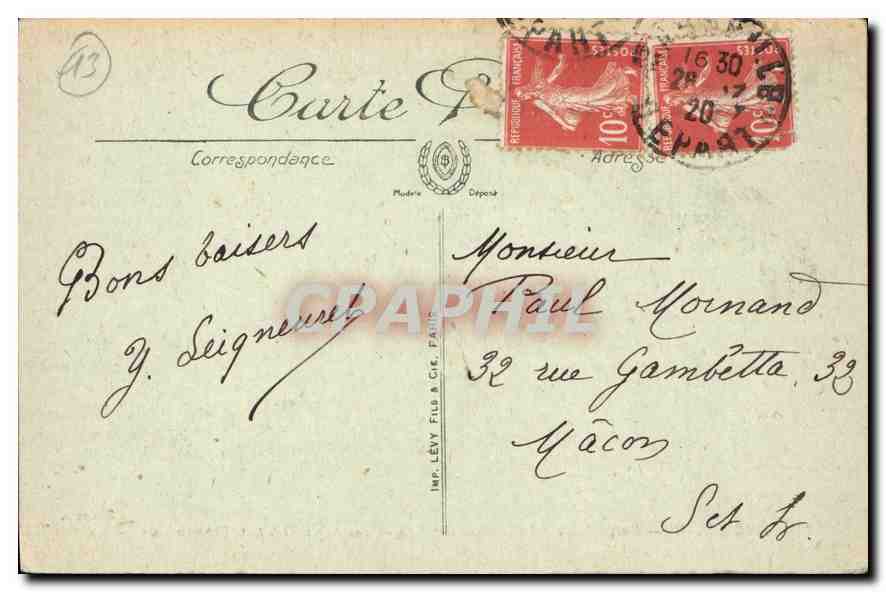 13
Carte P
RÉPUBLIQUE FRANÇAISE
POSTES
10c
RÉPUBLIQUE FRANÇAISE
POSTES
10c
16 30
28
20
DEPART
Correspondance
Adresse
Modèle Déposé
Bons baisers
Y. Seigneuret
Monsieur
Paul Mornand
32 rue Gambetta. 32
Mâcon
Set L.
IMP. LÉVY FILS & CIE, PARIS
CPAPHIL